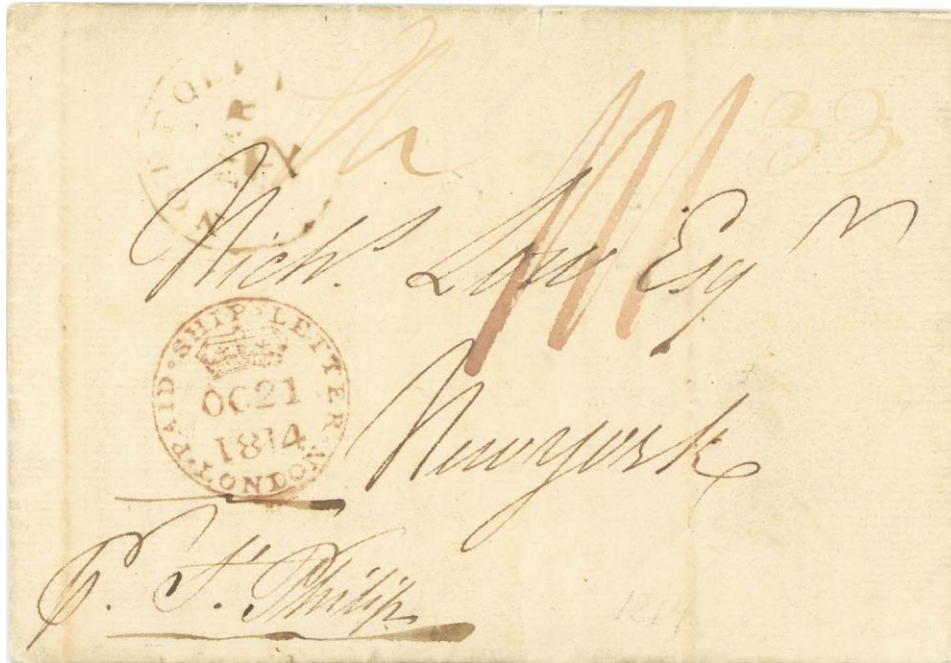 Sh 33
Nichs. Low Esqr
PAID·SHIP·LETTER·LONDON·
OC21
1814
Newyork
P. St. Philip
1814